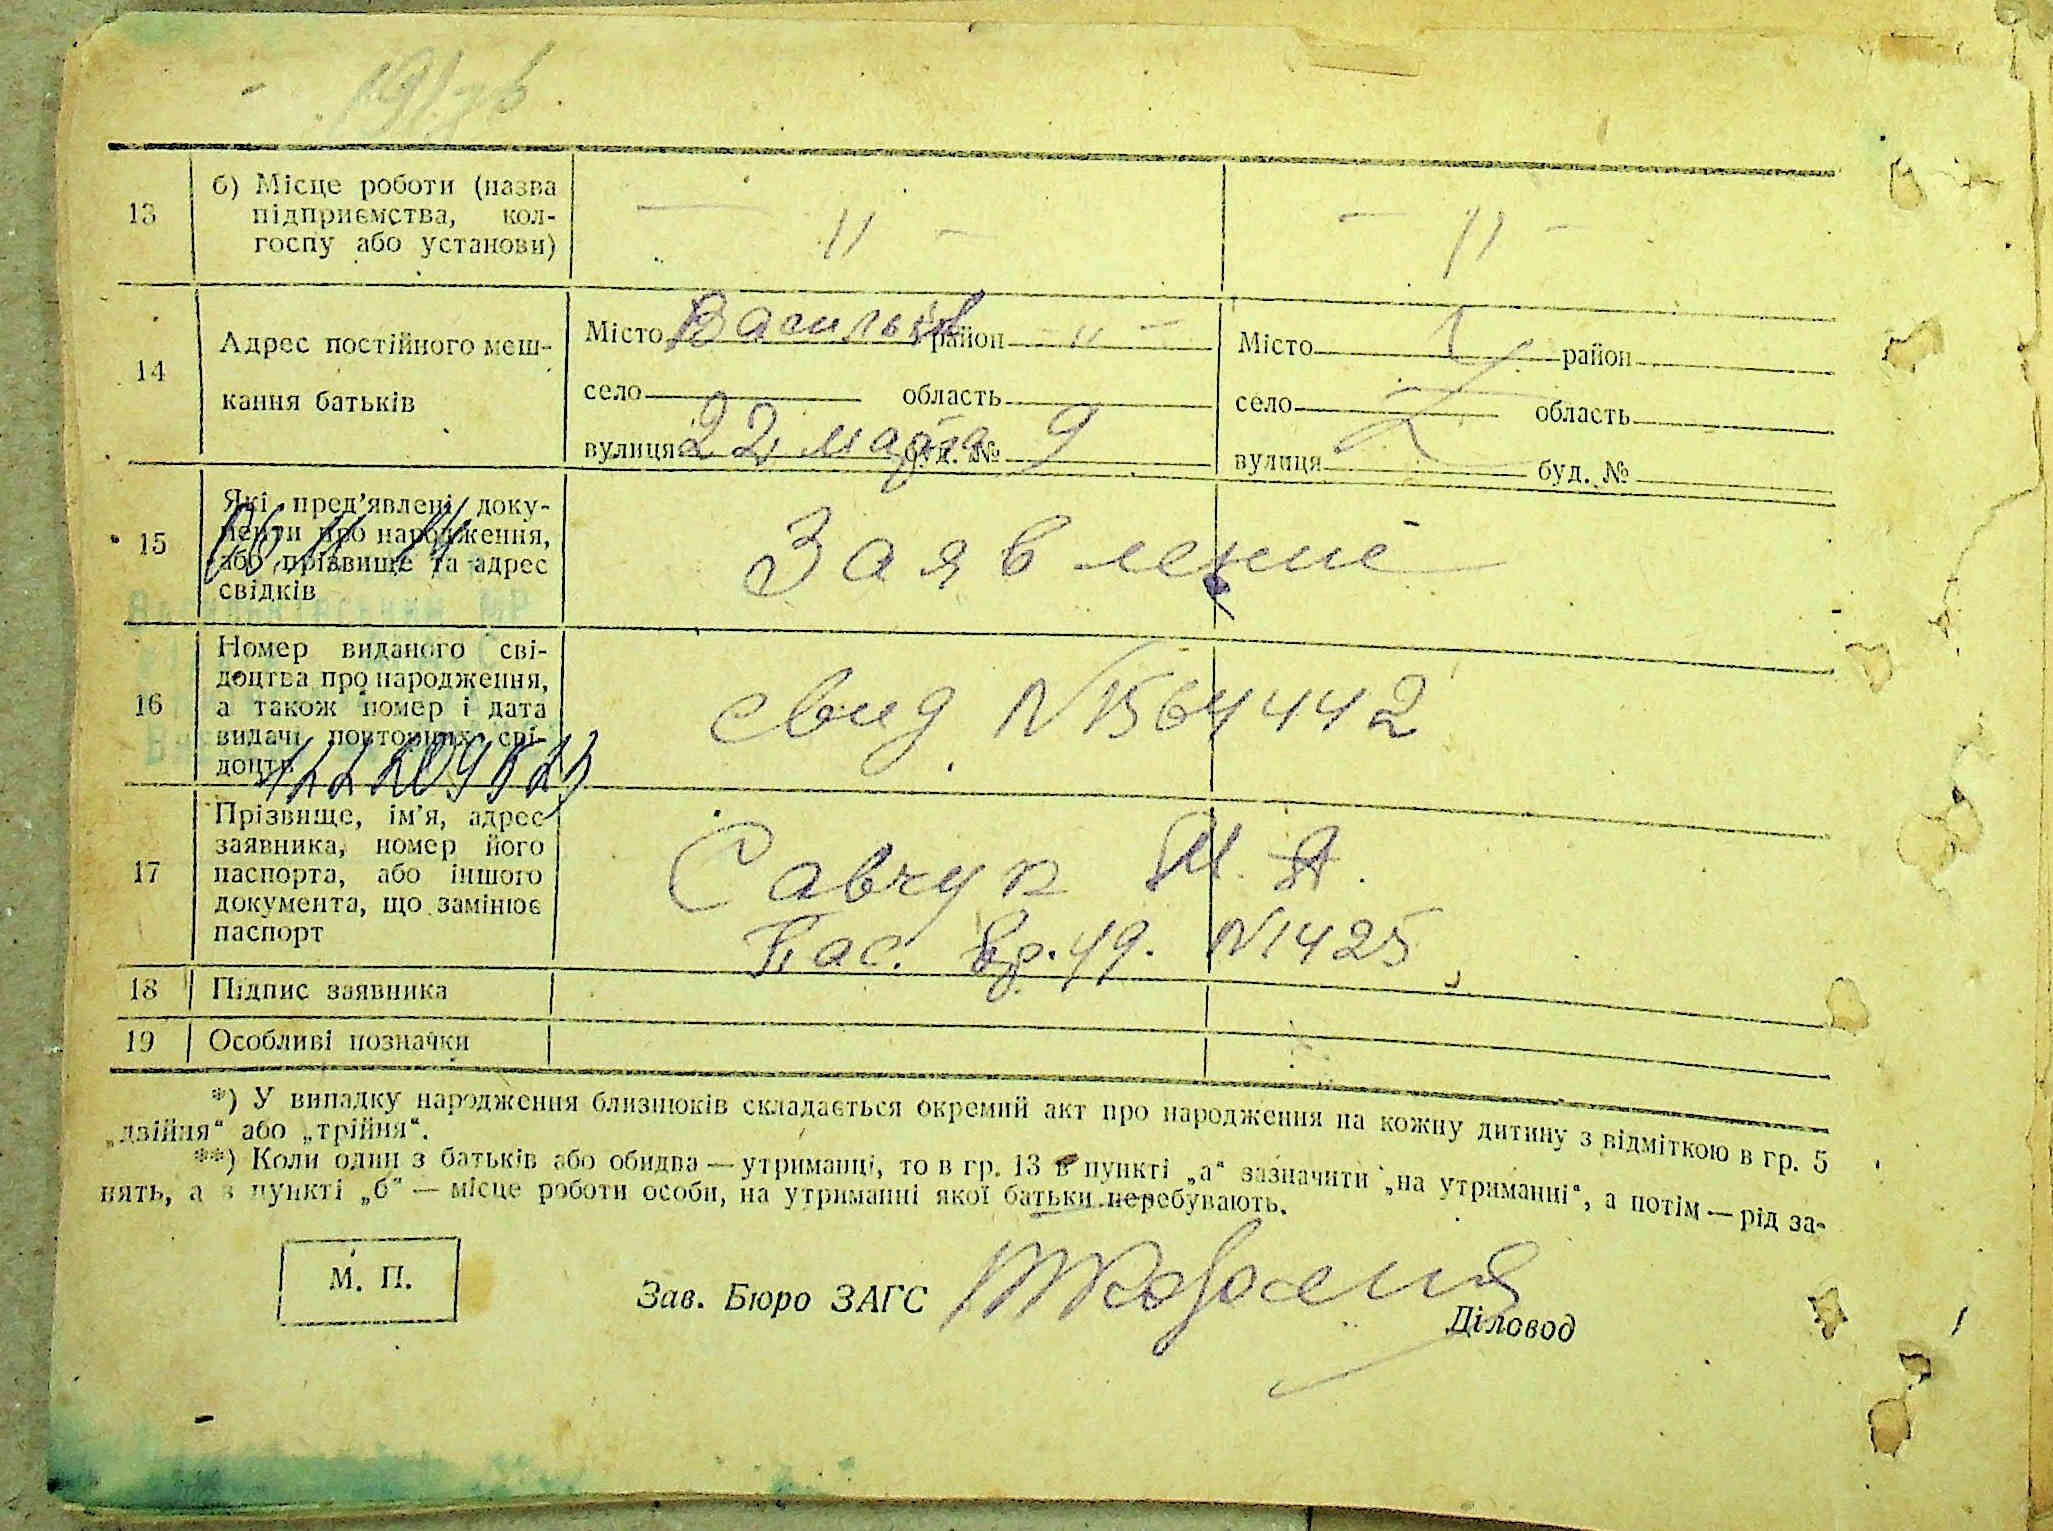 13
б) Місце роботи (назва
підприємства, кол-
госпу або установи)
— " —
— " —
14
Адрес постійного меш-
кання батьків
Місто Васильків район — " —
село область
вулиця 22 марта буд. № 9
Місто район
село область
вулиця буд. №
15
Які пред’явлені доку-
менти про народження,
або прізвище та адрес
свідків
Заявление
16
Номер виданого сві-
доцтва про народження,
а також номер і дата
видачі повторних сві-
доцтв
свид N 1564442
17
Прізвище, ім’я, адрес
заявника, номер його
паспорта, або іншого
документа, що замінює
паспорт
Савчук М. А.
Пас. вр. 49. N 1425
18
Підпис заявника
19
Особливі позначки
*) У випадку народження близнюків складається окремий акт про народження на кожну дитину з відміткою в гр. 5
„двійня“ або „трійня“.
**) Коли один з батьків або обидва — утриманці, то в гр. 13 в пункті „а“ зазначити „на утриманні“, а потім — рід за-
нять, а в пункті „б“ — місце роботи особи, на утриманні якої батьки перебувають.
М. П.
Зав. Бюро ЗАГС
Діловод